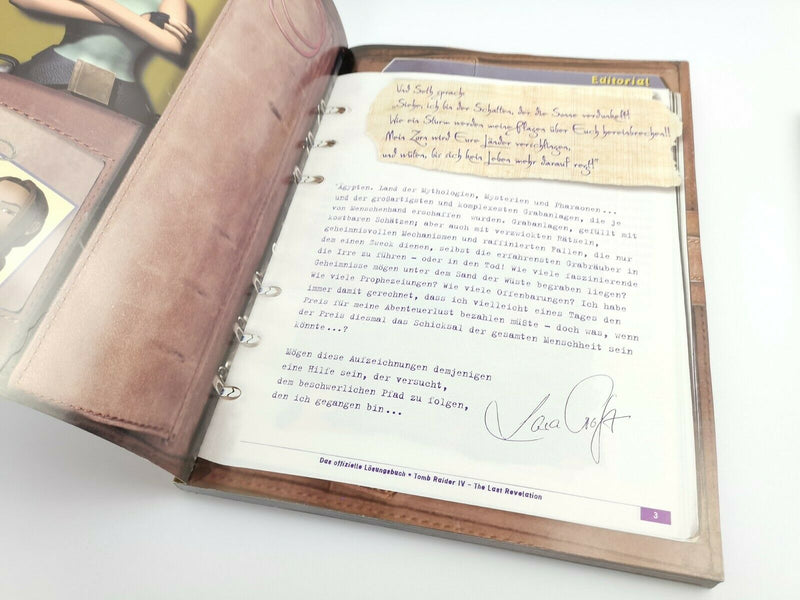 Editorial
Und Seth sprach:
„Siehe, ich bin der Schatten, der die Sonne verdunkelt!
Wie ein Sturm werden meine Plagen über Euch hereinbrechen!!
Mein Zorn wird Eure Länder vernichtigen,
und wüten, bis sich kein Leben mehr darauf regt!"
"Ägypten. Land der Mythologien, Mysterien und Pharaonen...
und der großartigsten und komplexesten Grabanlagen, die je
von Menschenhand erschaffen wurden. Grabanlagen, gefüllt mit
kostbaren Schätzen; aber auch mit verzwickten Rätseln,
geheimnisvollen Mechanismen und raffinierten Fallen, die nur
dem einen Zweck dienen, selbst die erfahrensten Grabräuber in
die Irre zu führen - oder in den Tod! Wie viele faszinierende
Geheimnisse mögen unter dem Sand der Wüste begraben liegen?
Wie viele Prophezeiungen? Wie viele Offenbarungen? Ich habe
immer damit gerechnet, dass ich vielleicht eines Tages den
Preis für meine Abenteuerlust bezahlen müßte - doch was, wenn
der Preis diesmal das Schicksal der gesamten Menschheit sein
könnte...?
Mögen diese Aufzeichnungen demjenigen
eine Hilfe sein, der versucht,
dem beschwerlichen Pfad zu folgen,
den ich gegangen bin...
Lara Croft
Das offizielle Lösungsbuch • Tomb Raider IV - The Last Revelation
3